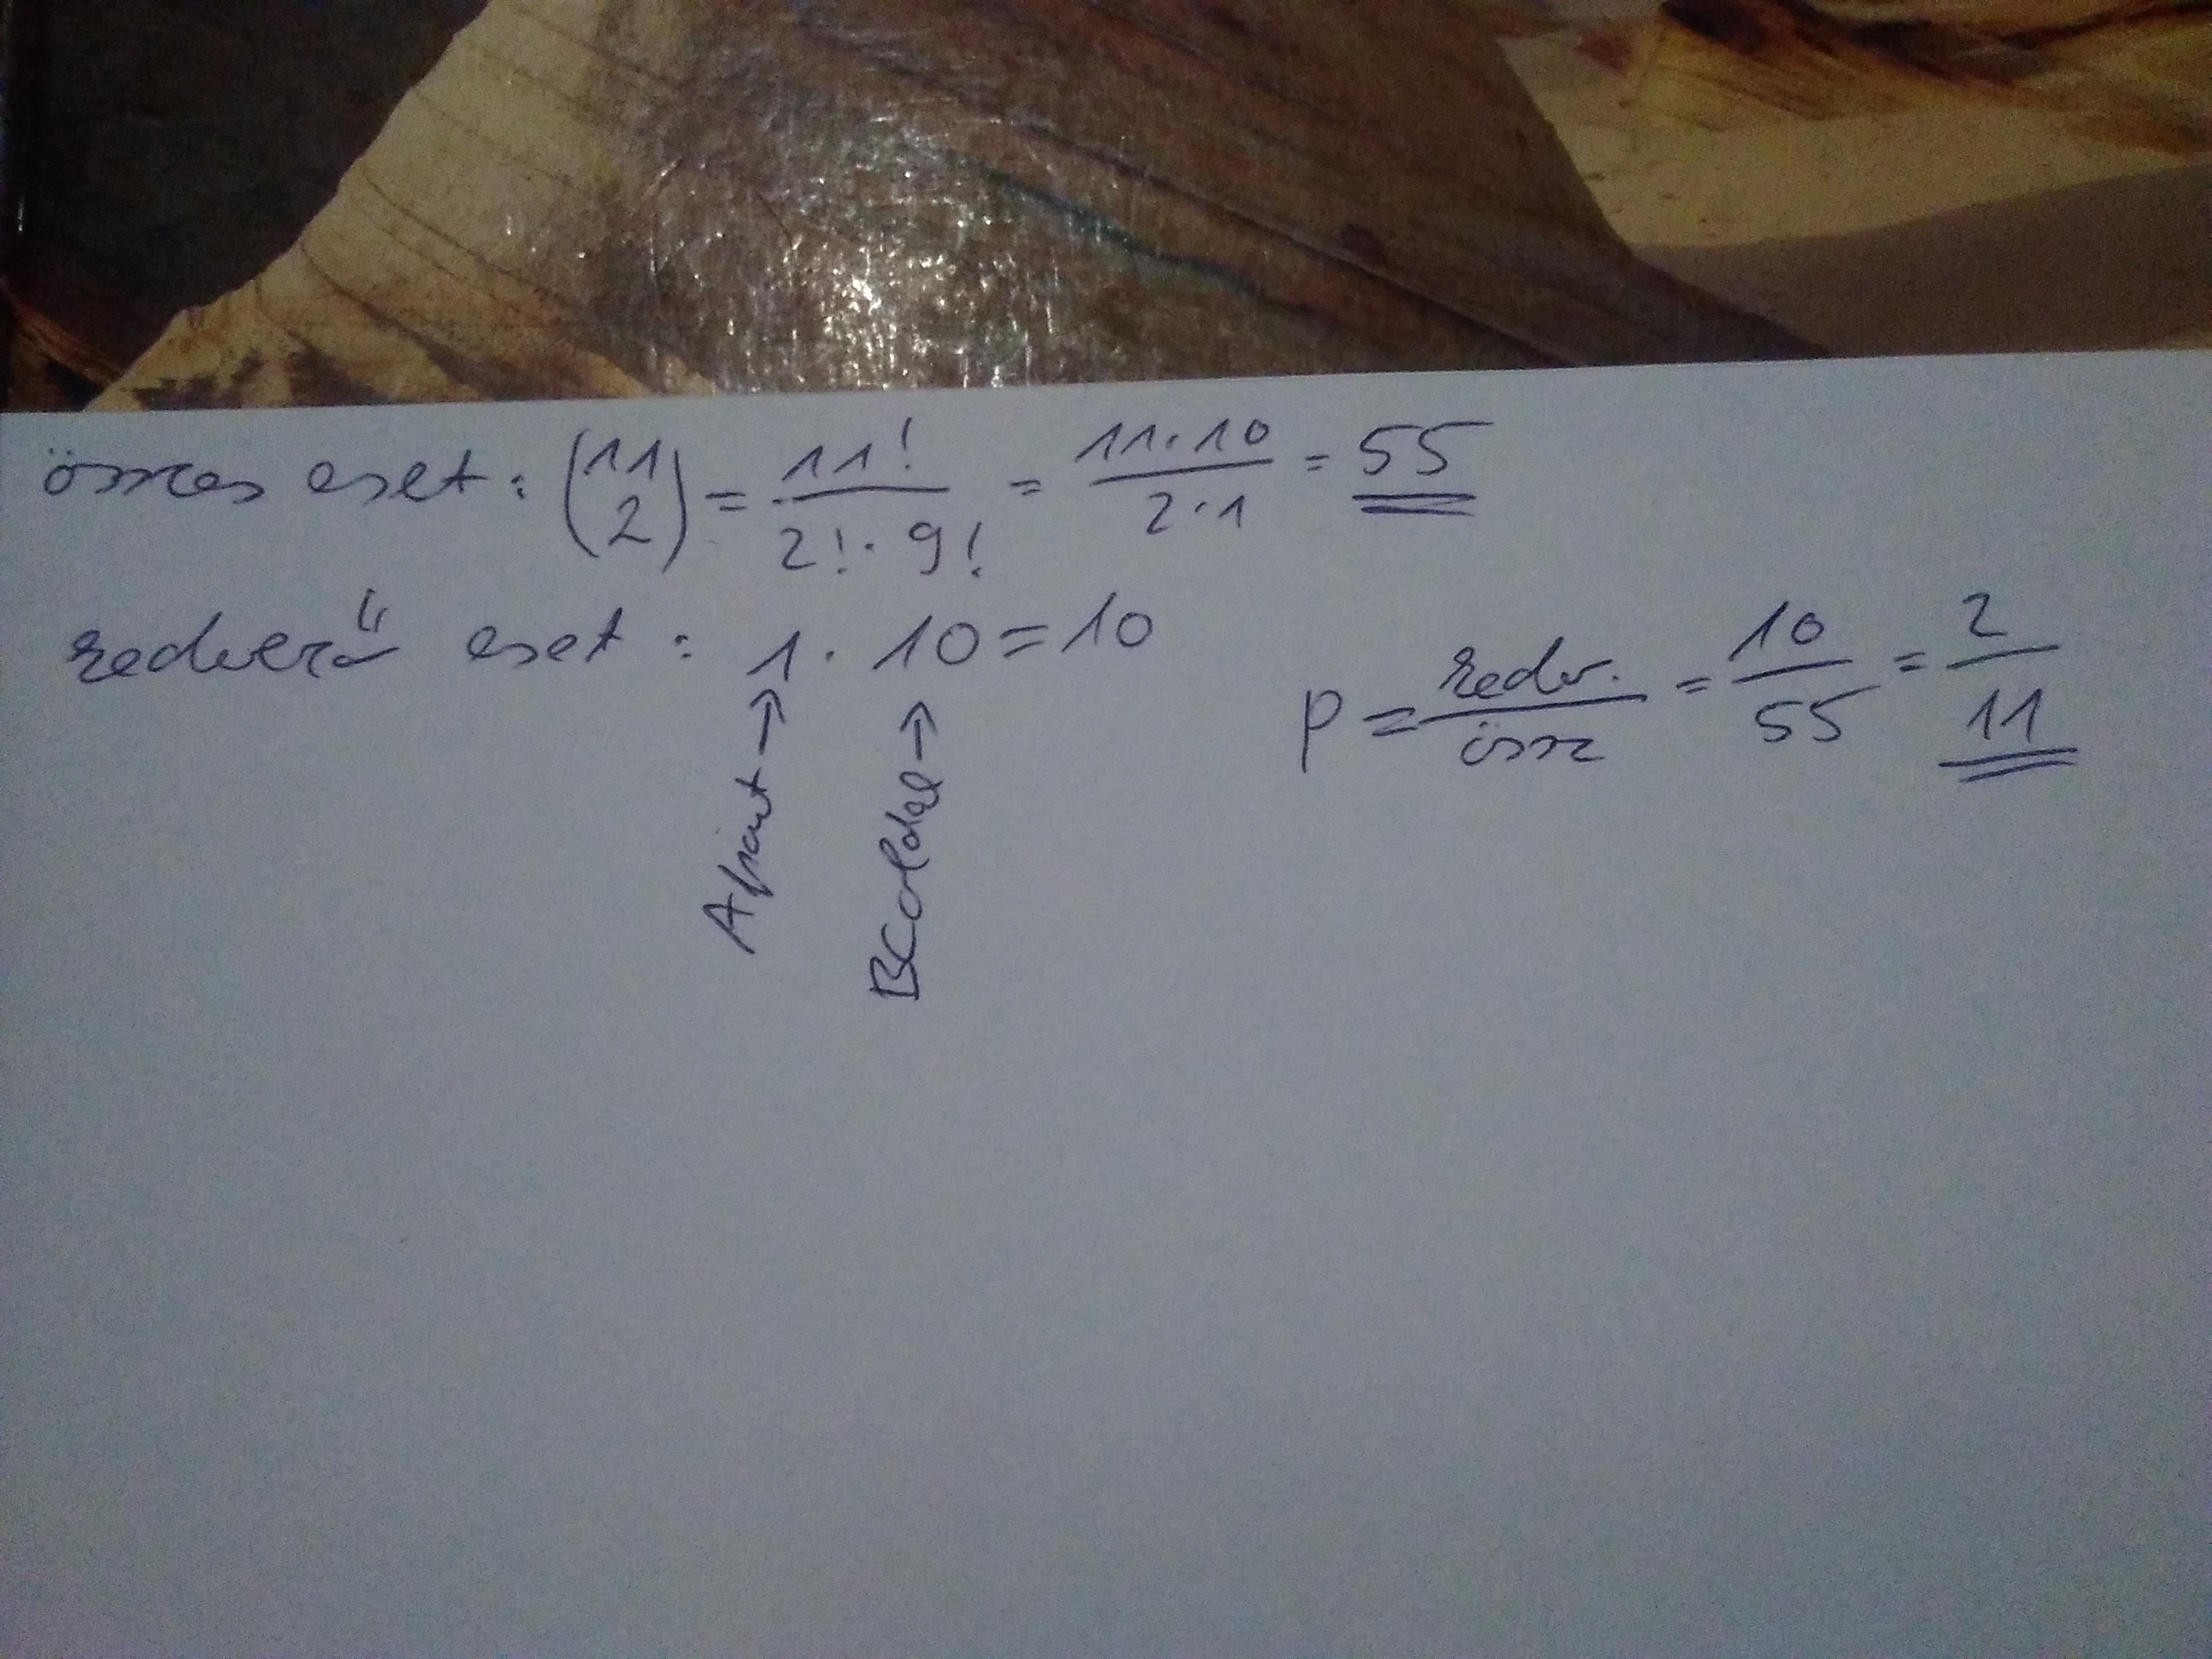 összes eset: (11 2) = 11! / 2!·9! = 11·10 / 2·1 = 55
kedvező eset: 1 · 10 = 10
A pont → BC oldal →
p = kedv. / össz = 10 / 55 = 2 / 11